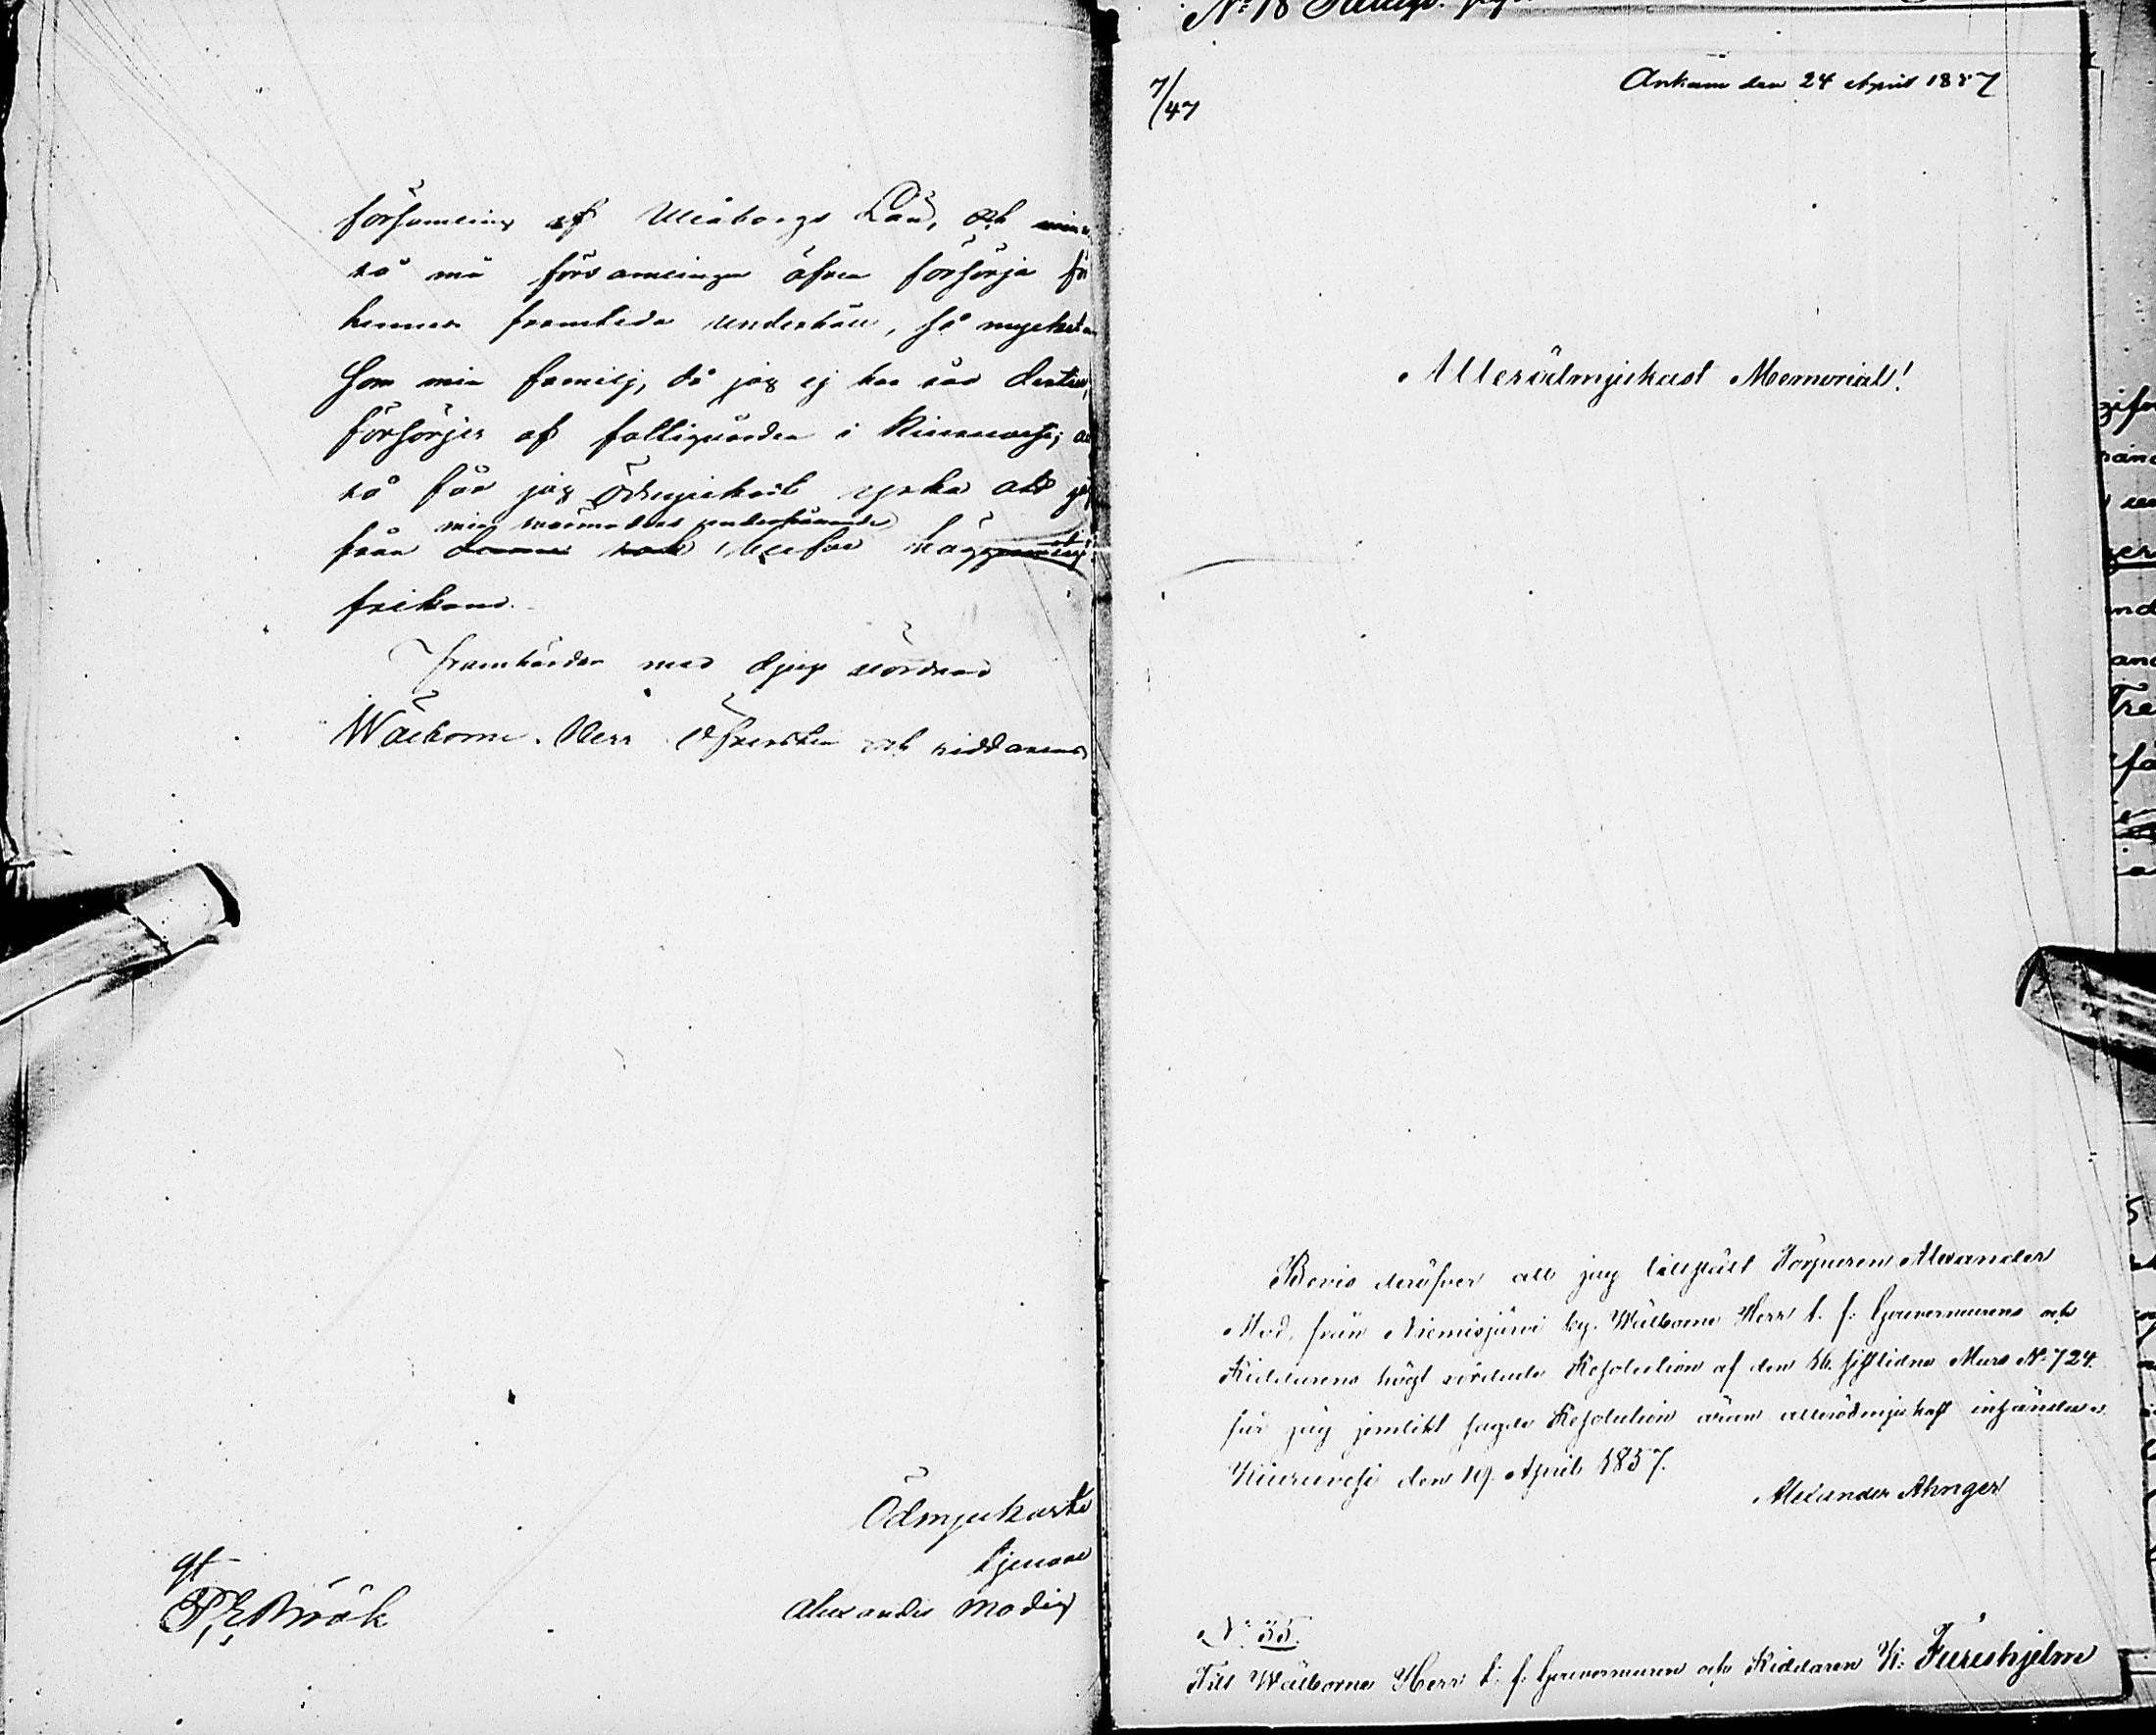 församling af Uleåborgs Län, och
så må församlingen äfven försörja
hennes framtida underhåll, så
Som min familj, då jag ej har råd dertill,
försörjes af fattigvården i Kiuruvesi;
så får jag Ödmjukast yrka att
min svärmoders underhållande
från denna
frikänd.
Framhärdar med djup vördnad
Wälborne Herr Öfversten och riddarens
Ödmjukaste
tjenare
Alexander Modig
gt
P, E, Brök
No 18
7/47
Ankom den 24 April 1857
Allerödmjukast Memorial!
Bevis deröfver att jag tillstält Torparen Alexander
Mod. från Niemisjärvi by. Wälborne Herr t. f. Guverneurens och
Riddarens högt vördade Resolution af den 16. sistlidne Mars No 724.
får jag jemlikt sagde Resolution äran allerödmjukast insända.
Kiuruvesi den 19. April 1857.
Alexander Ahnger
No 35.
Till Wälborne Herr t. f. Guverneuren och Riddaren K: Furuhjelm